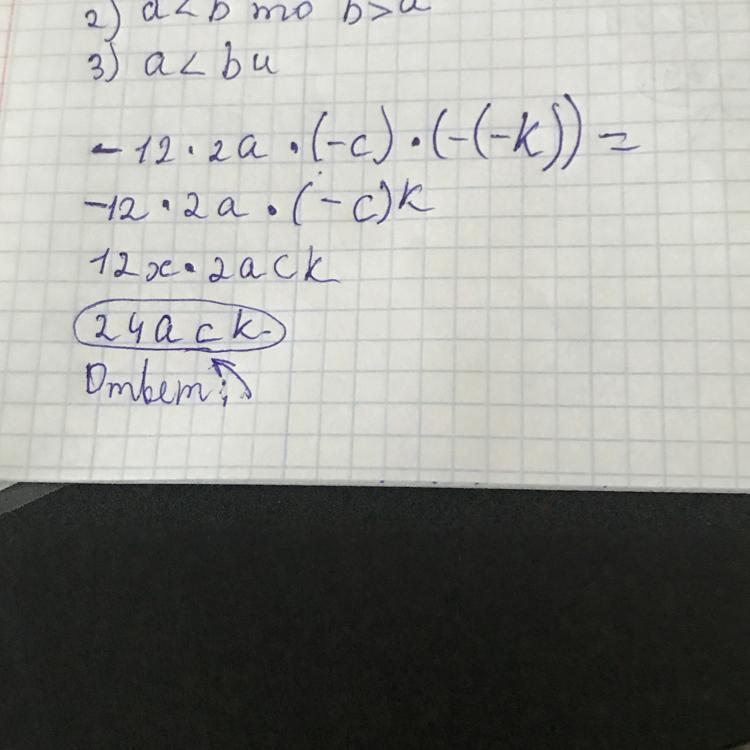 2) a < b то b > a
3) a < b и
- 12 · 2a · (-c) · (-(-k)) =
-12 · 2a · (-c)k
12x · 2ack
24ack
Ответ: